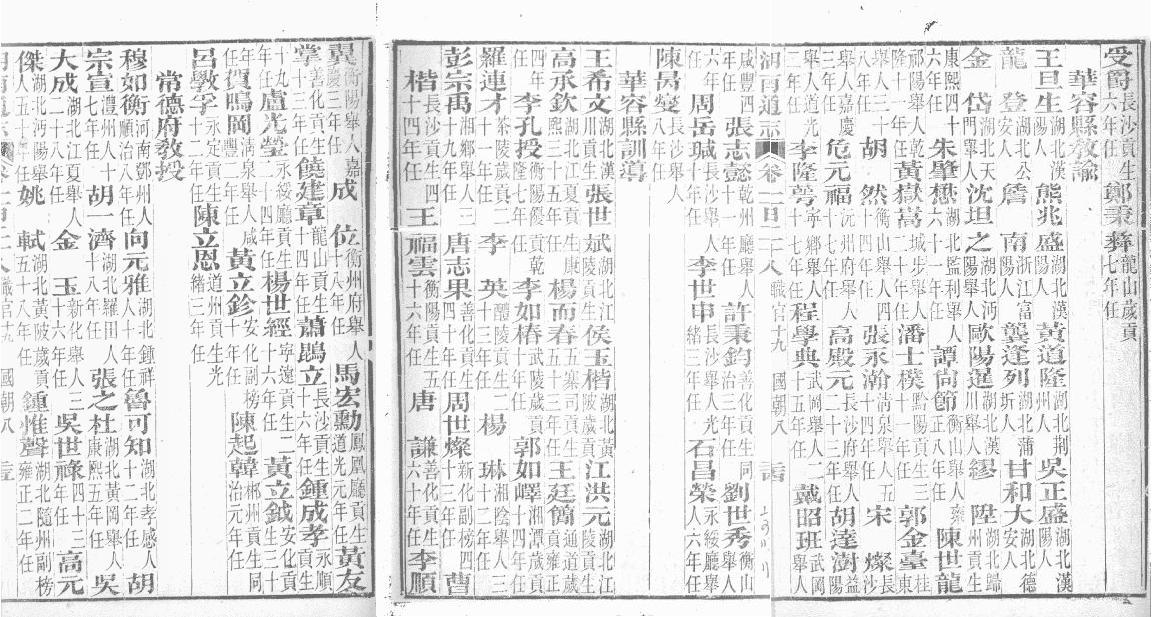 受爵長沙貢生六年任 鄭秉彝龍山歲貢七年任
華容縣教諭
王旦生湖北漢陽人 熊兆盛湖北漢陽人 黃道隆湖北荊州人 吳正盛湖北漢陽人
龍登湖北德安人 詹南浙江富人 龔逢列湖北蒲圻人 甘和大湖北德安人
金岱湖北天門舉人 沈坦之湖北沔陽舉人 歐陽暹湖北漢川舉人 繆陞湖北歸州貢生
康熙四十六年任 朱肇懋湖北監利舉人六十一年任 譚尙節衡山舉人雍正八年任 陳世龍
祁陽舉人乾隆十年任 黃嶽嵩城步舉人十七年任 潘士樸黔陽貢生三十一年任 郭金臺桂東
舉人三十八年任 胡然衡山舉人四十年任 張永瀚清泉舉人五十四年任 宋燦長沙
舉人嘉慶三年任 危元福沅州府舉人七年任 高殿元長沙府舉人二十三年任 胡達澍益陽
舉人道光二年任 李隆萼寧鄉舉人十七年任 程學典武岡舉人二十五年任 戴昭班武岡舉人
湖南通志 卷一百二十八 職官十九 國朝八
咸豐四年任 張志懿乾州廳舉人年任 許秉鈞善化貢生同治三年任 劉世秀衡山舉人
六年任 周岳瑊長沙舉人十年任 李世申長沙舉人光緒三年任 石昌榮永綏廳舉人六年任
陳昺燮長沙舉人八年任
華容縣訓導
王希文湖北漢川貢生 張世斌湖北江陵貢生 侯玉楷湖北黃陂歲貢 江洪元湖北江
高承欽湖北江夏貢生康熙三十五年任 楊而春五寨司貢生五十三年任 王廷簡通道歲貢雍正
四年任 李孔授衡陽貢乾隆七年任 李如椿武陵歲貢十年任 郭如嶧湘潭歲貢十四年任
羅連才茶陵歲貢二十年任 李英醴陵貢二十三年任 楊琳湘陰舉人三十二年任 曹
彭宗禹湘鄉舉人三十九年任 唐志果善化貢生四十年任 周世燦新化副榜四十三年任
楷長沙貢生四十四年任 王福雲衡陽貢生五十六年任 唐謙善化貢生六十年任 李順
翼衡陽舉人嘉慶三年任 成位衡州府舉人十八年任 馬宏勳鳳凰廳貢生道光元年任 黃友
掌善化貢生十三年任 饒建章龍山貢生十四年任 蕭鵾立長沙貢生十六年任 鍾成孝永順貢生
十九年任 盧光瑩永綏廳貢生二十四年任 楊世經寧遠貢生二十六年任 黃立鉞安化貢生三十
年任 賀鳴岡清泉舉人咸豐二年任 黃立鉁安化副榜十年任 陳起韓郴州貢生同治元年任
呂敩孚永定貢生十二年任 陳立恩道州貢生光緒三年任
常德府教授
穆如衡河南鄧州人順治八年任 向元雅湖北鍾祥人十年任 魯可知湖北孝感人十二年任 胡
宗宣澧州人十七年任 胡一濟湖北羅田人十八年任 張之杜湖北黃岡舉人康熙五年任 吳
大成湖北江夏舉人二十八年任 金玉新化舉人三十六年任 吳世祿四十三年任 高元
傑湖北沔陽舉人五十年任 姚軾湖北黃陂歲貢五十八年任 鍾惟聲湖北隨州副榜雍正二年任
湖南通志 職官十九 國朝八